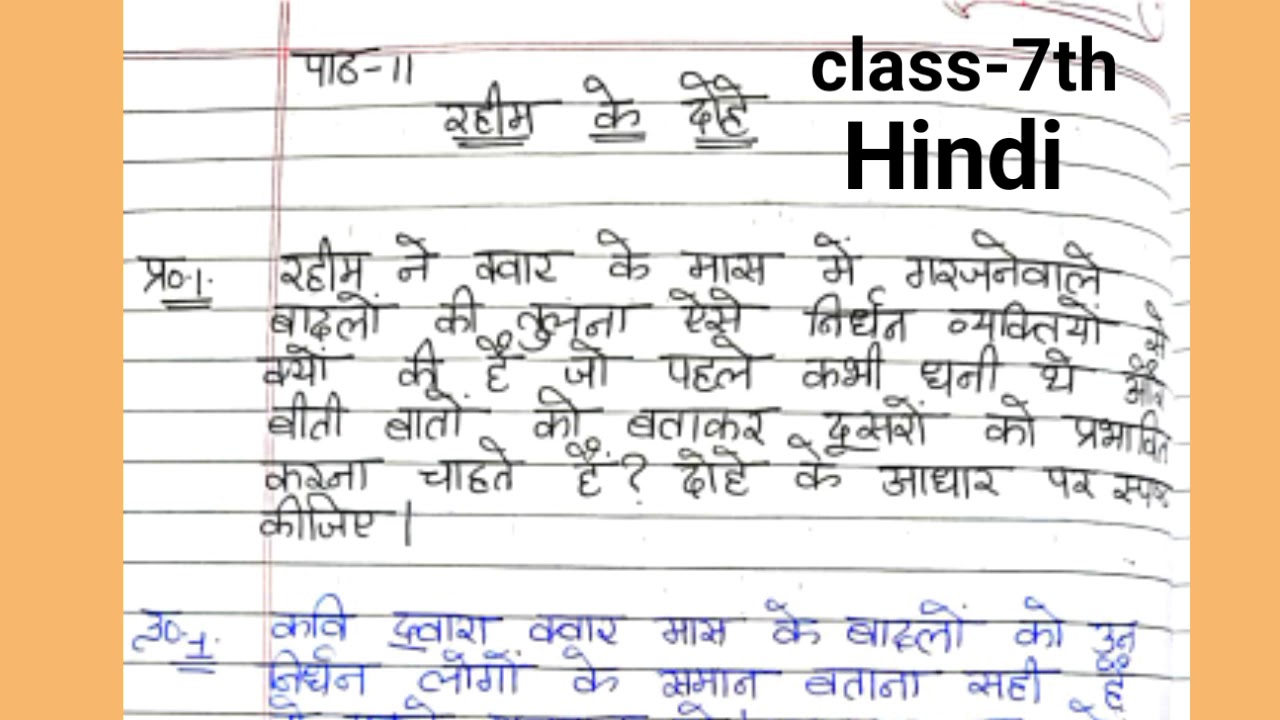 class-7th
Hindi
पाठ-11
रहीम के दोहे
प्र०-1. रहीम ने क्वार के मास में गरजनेवाले
बादलों की तुलना ऐसे निर्धन व्यक्तियों से
क्यों की है जो पहले कभी धनी थे और
बीती बातों को बताकर दूसरों को प्रभावित
करना चाहते हैं? दोहे के आधार पर स्पष्ट
कीजिए।
उ०-1. कवि द्वारा क्वार मास के बादलों को उन
निर्धन लोगों के समान बताना सही है